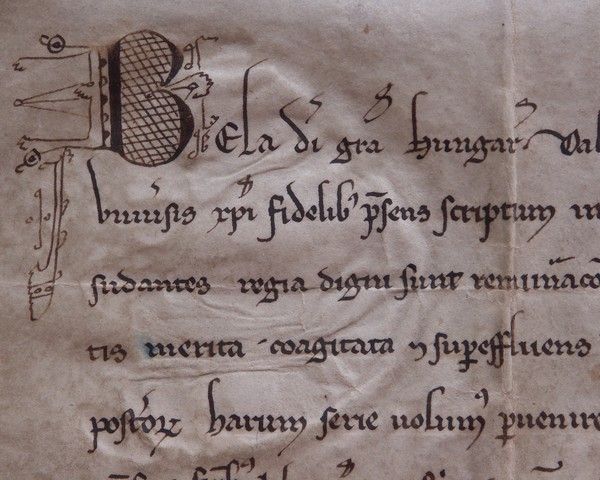 BEla di gra hungar Dal
bniusis xpi fidelib' psens scriptum in
sudantes regia digni sunt remunaco
tis merita coagitata ⁊ supeffluens
postor harum serie uolum' puenire